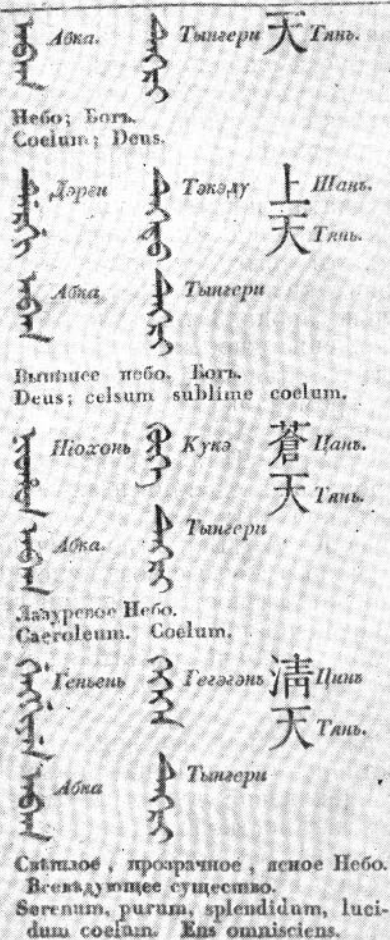 ᠠᠪᡴᠠ Абка. ᠲᠩᠷᠢ Тынгери 天 Тянь.
Небо; Богъ.
Coelum; Deus.
ᡩᡝᡵᡤᡳ Дэрги ᠳᠡᠭᠡᠳᠦ Тэкэду 上 Шань.
ᠠᠪᡴᠠ Абка ᠲᠩᠷᠢ Тынгери 天 Тянь.
Вышшее небо. Богъ.
Deus; celsum sublime coelum.
ᠨᡳᠣᡥᠣᠨ Ніохонь ᠬᠥᠬᠡ Кукэ 蒼 Цань.
ᠠᠪᡴᠠ Абка. ᠲᠩᠷᠢ Тынгери 天 Тянь.
Лазуревое Небо.
Caeroleum. Coelum.
ᡤᡝᠩᡤᡳᠶᡝᠨ Геньень ᠭᠡᠭᠡᠭᠡᠨ Гегэгэнь 淸 Цинь
ᠠᠪᡴᠠ Абка ᠲᠩᠷᠢ Тынгери 天 Тянь.
Свѣтлое, прозрачное, ясное Небо.
Всевѣдующее существо.
Serenum, purum, splendidum, luci-
dum coelum. Ens omnisciens.